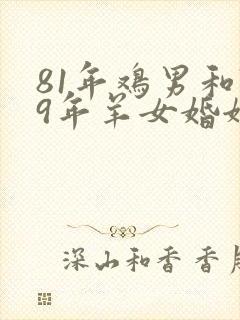 81年鸡男和
9年羊女婚姻
深山和香香